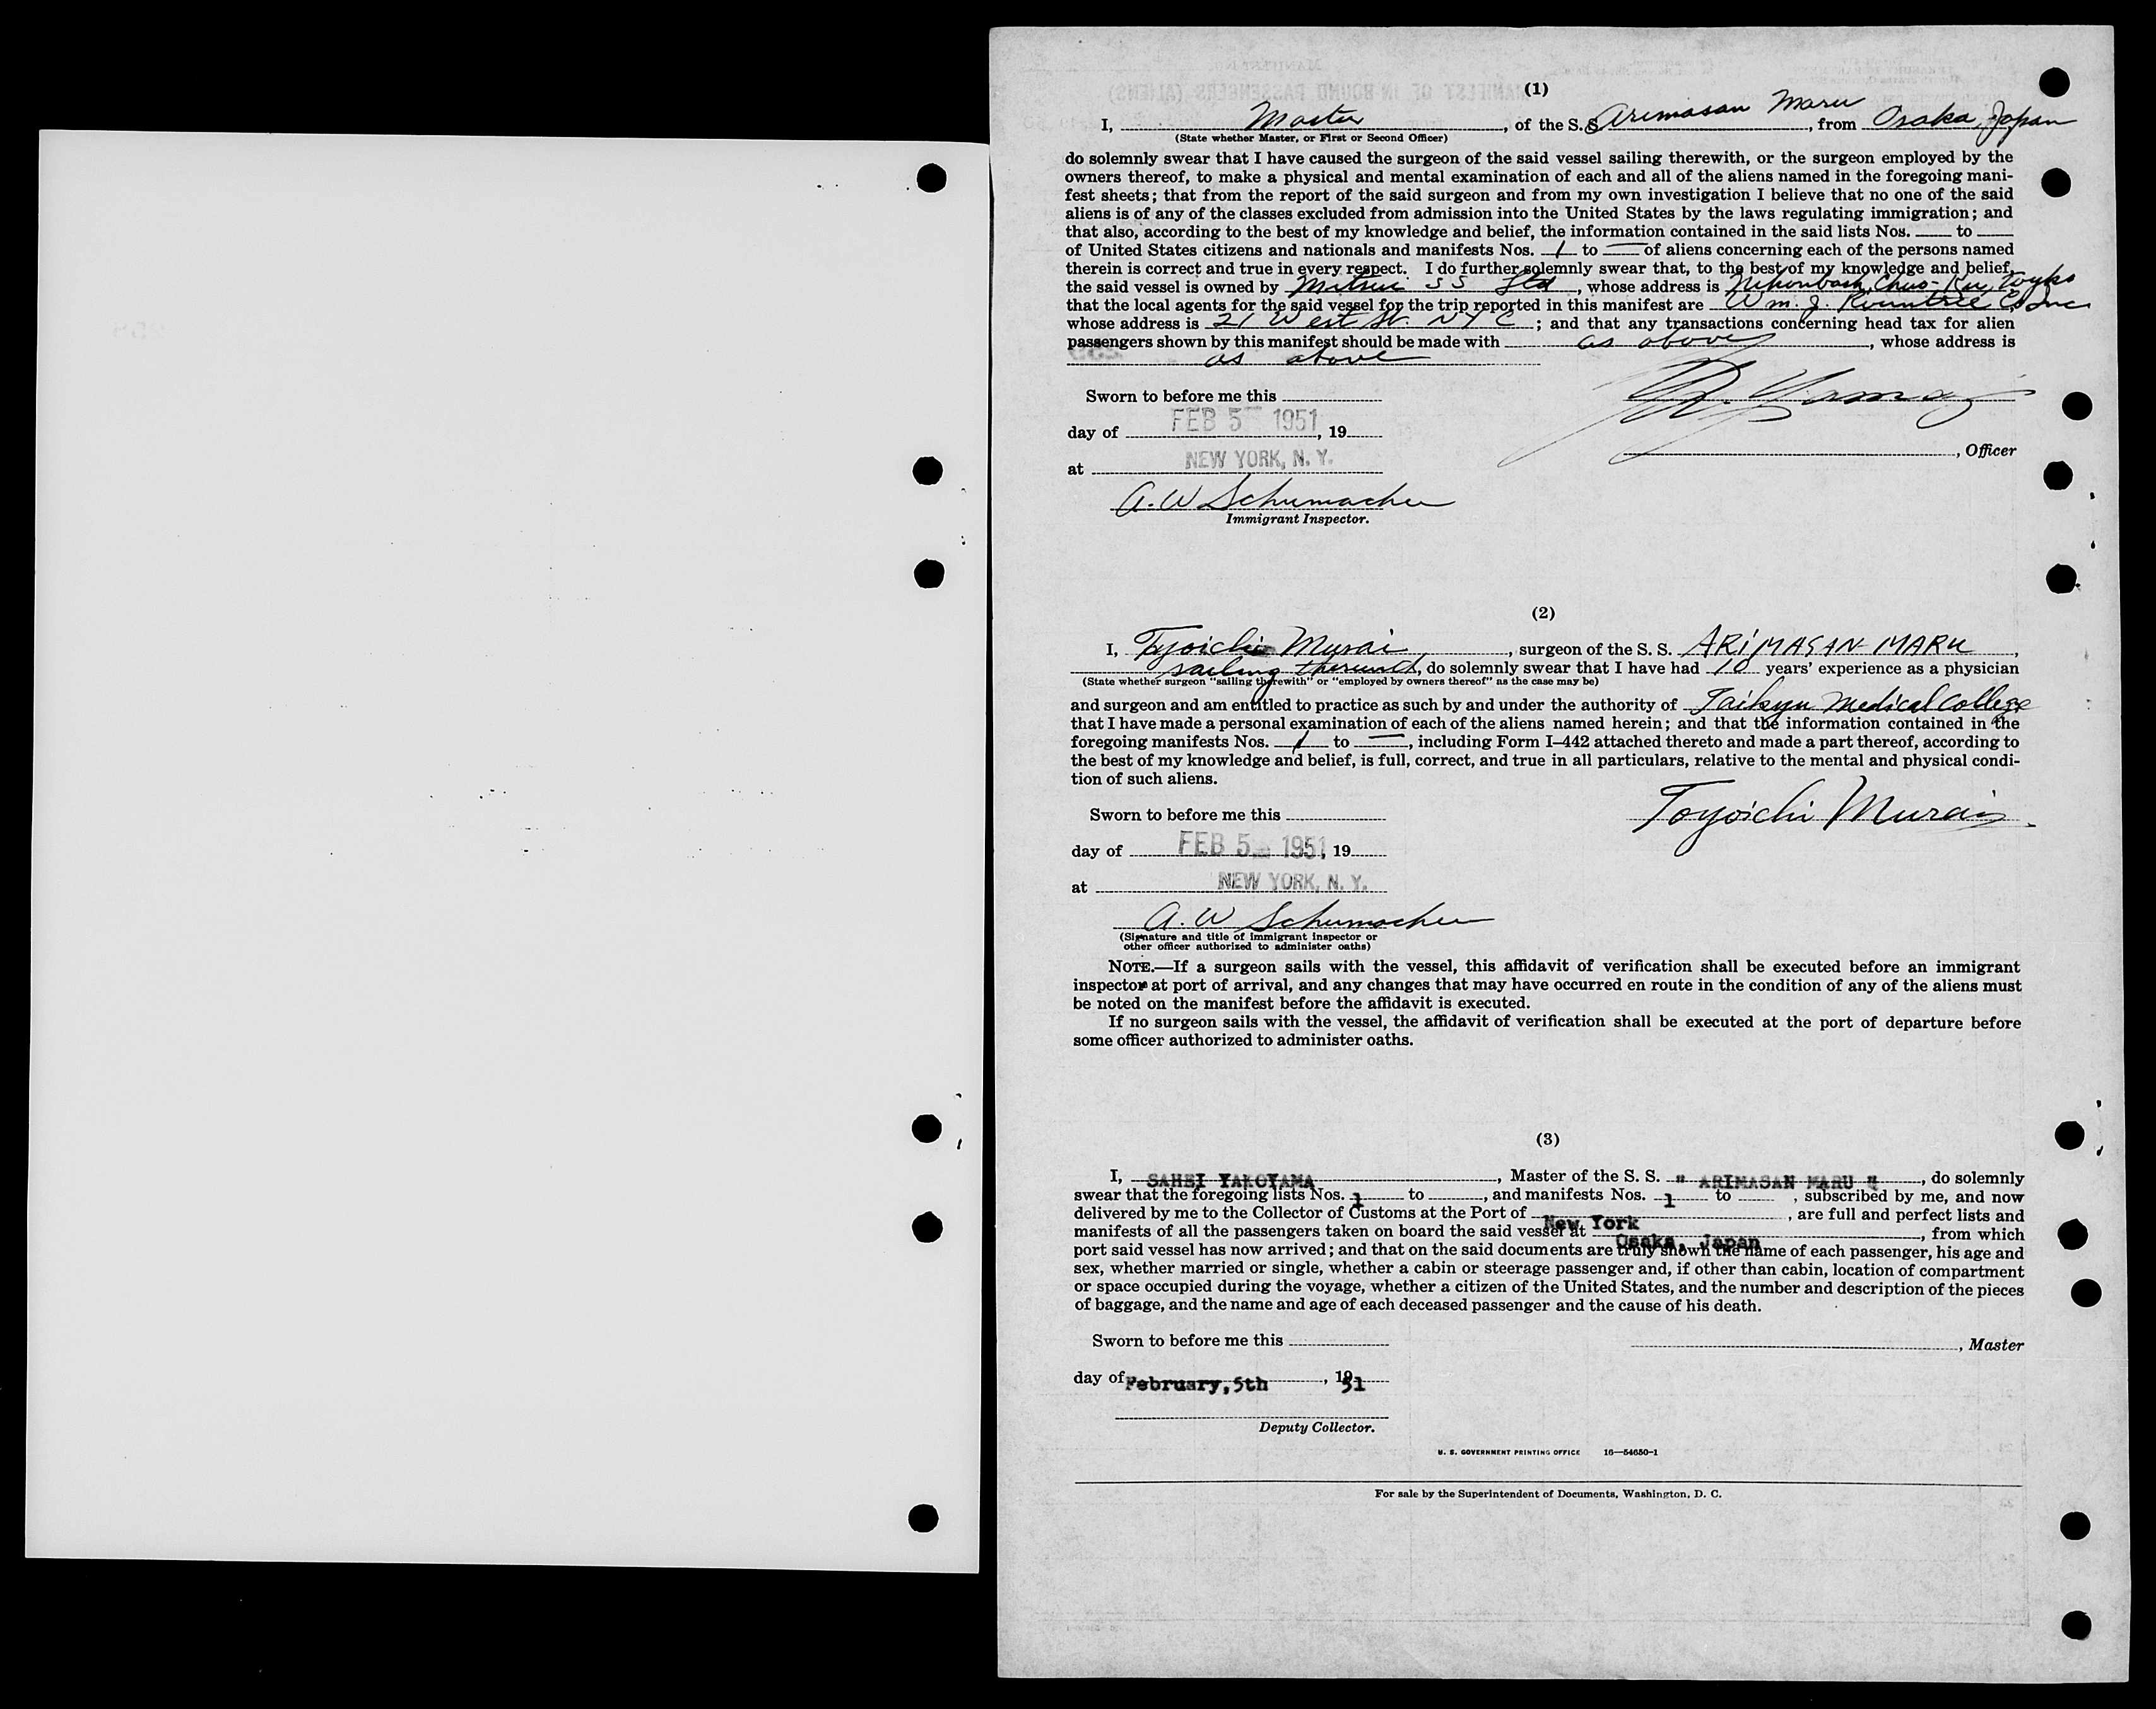 (1)
I, Master, of the S. S. Arimasan Maru, from Osaka, Japan
(State whether Master, or First or Second Officer)
do solemnly swear that I have caused the surgeon of the said vessel sailing therewith, or the surgeon employed by the
owners thereof, to make a physical and mental examination of each and all of the aliens named in the foregoing mani-
fest sheets; that from the report of the said surgeon and from my own investigation I believe that no one of the said
aliens is of any of the classes excluded from admission into the United States by the laws regulating immigration; and
that also, according to the best of my knowledge and belief, the information contained in the said lists Nos. to
of United States citizens and nationals and manifests Nos. 1 to — of aliens concerning each of the persons named
therein is correct and true in every respect. I do further solemnly swear that, to the best of my knowledge and belief,
the said vessel is owned by Mitsui SS Ltd, whose address is Nihonbashi, Chuo-Ku, Toyko
that the local agents for the said vessel for the trip reported in this manifest are Wm. J. Rountree Co Inc
whose address is 21 West St. NYC; and that any transactions concerning head tax for alien
passengers shown by this manifest should be made with as above, whose address is
as above
Sworn to before me this
day of FEB 5 1951, 19
at NEW YORK, N. Y.
, Officer
A. W Schumacher
Immigrant Inspector.
(2)
I, Toyoichi Murai, surgeon of the S. S. ARIMASAN MARU,
sailing therewith, do solemnly swear that I have had 10 years' experience as a physician
(State whether surgeon "sailing therewith" or "employed by owners thereof" as the case may be)
and surgeon and am entitled to practice as such by and under the authority of Taikyu Medical College
that I have made a personal examination of each of the aliens named herein; and that the information contained in the
foregoing manifests Nos. 1 to —, including Form I–442 attached thereto and made a part thereof, according to
the best of my knowledge and belief, is full, correct, and true in all particulars, relative to the mental and physical condi-
tion of such aliens.
Sworn to before me this
Toyoichi Murai
day of FEB 5 1951, 19
at NEW YORK, N. Y.
A. W Schumacher
(Signature and title of immigrant inspector or
other officer authorized to administer oaths)
NOTE.—If a surgeon sails with the vessel, this affidavit of verification shall be executed before an immigrant
inspector at port of arrival, and any changes that may have occurred en route in the condition of any of the aliens must
be noted on the manifest before the affidavit is executed.
If no surgeon sails with the vessel, the affidavit of verification shall be executed at the port of departure before
some officer authorized to administer oaths.
(3)
I, SAHEI YAKOYAMA, Master of the S. S. " ARIMASAN MARU ", do solemnly
swear that the foregoing lists Nos. 1 to , and manifests Nos. 1 to , subscribed by me, and now
delivered by me to the Collector of Customs at the Port of New York, are full and perfect lists and
manifests of all the passengers taken on board the said vessel at Osaka, Japan, from which
port said vessel has now arrived; and that on the said documents are truly shown the name of each passenger, his age and
sex, whether married or single, whether a cabin or steerage passenger and, if other than cabin, location of compartment
or space occupied during the voyage, whether a citizen of the United States, and the number and description of the pieces
of baggage, and the name and age of each deceased passenger and the cause of his death.
Sworn to before me this
, Master
day of February, 5th, 1951
Deputy Collector.
U. S. GOVERNMENT PRINTING OFFICE 16—54650-1
For sale by the Superintendent of Documents, Washington, D. C.